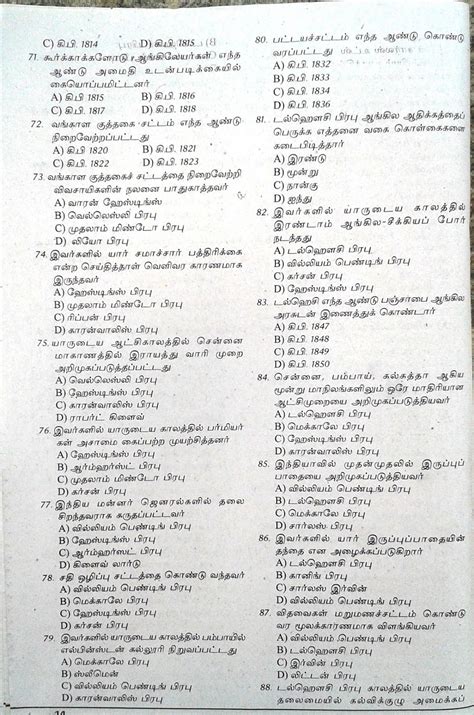 C) கி.பி. 1814 D) கி.பி. 1815
71. கூர்க்காக்களோடு ஆங்கிலேயர்கள் எந்த
ஆண்டு அமைதி உடன்படிக்கையில்
கையொப்பமிட்டனர்
A) கி.பி 1815 B) கி.பி. 1816
C) கி.பி. 1817 D) கி.பி. 1818
72. வங்காள குத்தகை சட்டம் எந்த ஆண்டு
நிறைவேற்றப்பட்டது
A) கி.பி 1820 B) கி.பி. 1821
C) கி.பி. 1822 D) கி.பி. 1823
73. வங்காள குத்தகைச் சட்டத்தை நிறைவேற்றி
விவசாயிகளின் நலனை பாதுகாத்தவர்
A) வாரன் ஹேஸ்டிங்ஸ்
B) வெல்லெஸ்லி பிரபு
C) முதலாம் மிண்டோ பிரபு
D) லியோ பிரபு
74. இவர்களில் யார் சமாச்சார் பத்திரிக்கை
என்ற செய்தித்தாள் வெளிவர காரணமாக
இருந்தவர்
A) ஹேஸ்டிங்ஸ் பிரபு
B) முதலாம் மிண்டோ பிரபு
C) ரிப்பன் பிரபு
D) காரன்வாலிஸ் பிரபு
75. யாருடைய ஆட்சிகாலத்தில் சென்னை
மாகாணத்தில் இராயத்து வாரி முறை
அறிமுகப்படுத்தப்பட்டது
A) வெல்லெஸ்லி பிரபு
B) ஹேஸ்டிங்ஸ் பிரபு
C) காரன்வாலிஸ் பிரபு
D) ராபர்ட் கிளைவ்
76. இவர்களில் யாருடைய காலத்தில் பர்மியர்
கள் அசாமை கைப்பற்ற முயற்சித்தனர்
A) ஹேஸ்டிங்ஸ் பிரபு
B) ஆர்ம்ஹர்ஸ்ட் பிரபு
C) முதலாம் மிண்டோ பிரபு
D) கர்சன் பிரபு
77. இந்திய மன்னர் ஜெனரல்களில் தலை
சிறந்தவராக கருதப்பட்டவர்
A) வில்லியம் பெண்டிங் பிரபு
B) ஹேஸ்டிங்ஸ் பிரபு
C) ஆர்ம்ஹர்ஸட் பிரபு
D) கிளைவ் லார்டு
78. சதி ஒழிப்பு சட்டத்தை கொண்டு வந்தவர்
A) வில்லியம் பெண்டிங் பிரபு
B) மெக்காலே பிரபு
C) ஹேஸ்டிங்ஸ் பிரபு
D) கர்சன் பிரபு
79. இவர்களில் யாருடைய காலத்தில் பம்பாயில்
எல்பின்ஸ்டன் கல்லூரி நிறுவப்பட்டது
A) மெக்காலே பிரபு
B) ஸ்லீமென்
C) வில்லியம் பெண்டிங் பிரபு
D) காரன்வாலிஸ் பிரபு
80. பட்டயச்சட்டம் எந்த ஆண்டு கொண்டு
வரப்பட்டது
A) கி.பி. 1832
B) கி.பி. 1833
C) கி.பி. 1834
D) கி.பி. 1836
81. டல்ஹௌசி பிரபு ஆங்கில ஆதிக்கத்தைப்
பெருக்க எத்தனை வகை கொள்கைகளை
கடைபிடித்தார்
A) இரண்டு
B) மூன்று
C) நான்கு
D) ஐந்து
82. இவர்களில் யாருடைய காலத்தில்
இரண்டாம் ஆங்கில-சீக்கியப் போர்
நடந்தது
A) டல்ஹௌசி பிரபு
B) வில்லியம் பெண்டிங் பிரபு
C) கர்சன் பிரபு
D) ஹேஸ்டிங்ஸ் பிரபு
83. டல்ஹௌசி எந்த ஆண்டு பஞ்சாபை ஆங்கில
அரசுடன் இணைத்துக் கொண்டார்
A) கி.பி. 1847
B) கி.பி. 1848
C) கி.பி. 1849
D) கி.பி. 1850
84. சென்னை, பம்பாய், கல்கத்தா ஆகிய
மூன்று மாநிலங்களிலும் ஒரே மாதிரியான
ஆட்சிமுறையை அறிமுகப்படுத்தியவர்
A) டல்ஹௌசி பிரபு
B) மெக்காலே பிரபு
C) கர்சன் பிரபு
D) காரன்வாலிஸ் பிரபு
85. இந்தியாவில் முதன்முதலில் இருப்புப்
பாதையை அறிமுகப்படுத்தியவர்
A) வில்லியம் பெண்டிங் பிரபு
B) டல்ஹௌசி பிரபு
C) மெக்காலே பிரபு
D) சார்லஸ் பிரபு
86. இவர்களில் யார் இருப்புப்பாதையின்
தந்தை என அழைக்கப்படுகிறார்
A) டல்ஹௌசி பிரபு
B) கானிங் பிரபு
C) சார்லஸ் இர்வின்
D) வில்லியம் பெண்டிங் பிரபு
87. விதவைகள் மறுமணச்சட்டம் கொண்டு
வர மூலக்காரணமாக விளங்கியவர்
A) வில்லியம் பெண்டிங் பிரபு
B) டல்ஹௌசி பிரபு
C) இர்வின் பிரபு
D) லிட்டன் பிரபு
88. டல்ஹௌசி பிரபு காலத்தில் யாருடைய
தலைமையில் கல்விக்குழு அமைக்கப்